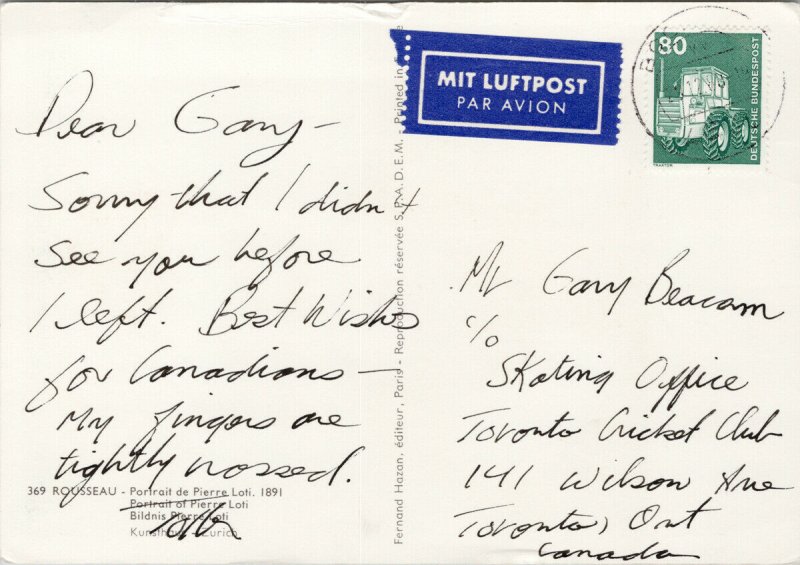 Dear Gary -
Sorry that I didn't
see you before
I left. Best Wishes
for Canadians -
My fingers are
tightly crossed.
369 ROUSSEAU - Portrait de Pierre Loti. 1891
Portrait of Pierre Loti
Bildnis Pierre Loti
Kunsthaus - Zurich
Fernand Hazan, éditeur, Paris - Reproduction réservée S.P.A.D.E.M. - Printed in
MIT LUFTPOST
PAR AVION
80
DEUTSCHE BUNDESPOST
TRAKTOR
Mr Gary Beacom
c/o
Skating Office
Toronto Cricket Club
141 Wilson Ave
Toronto, Ont
Canada